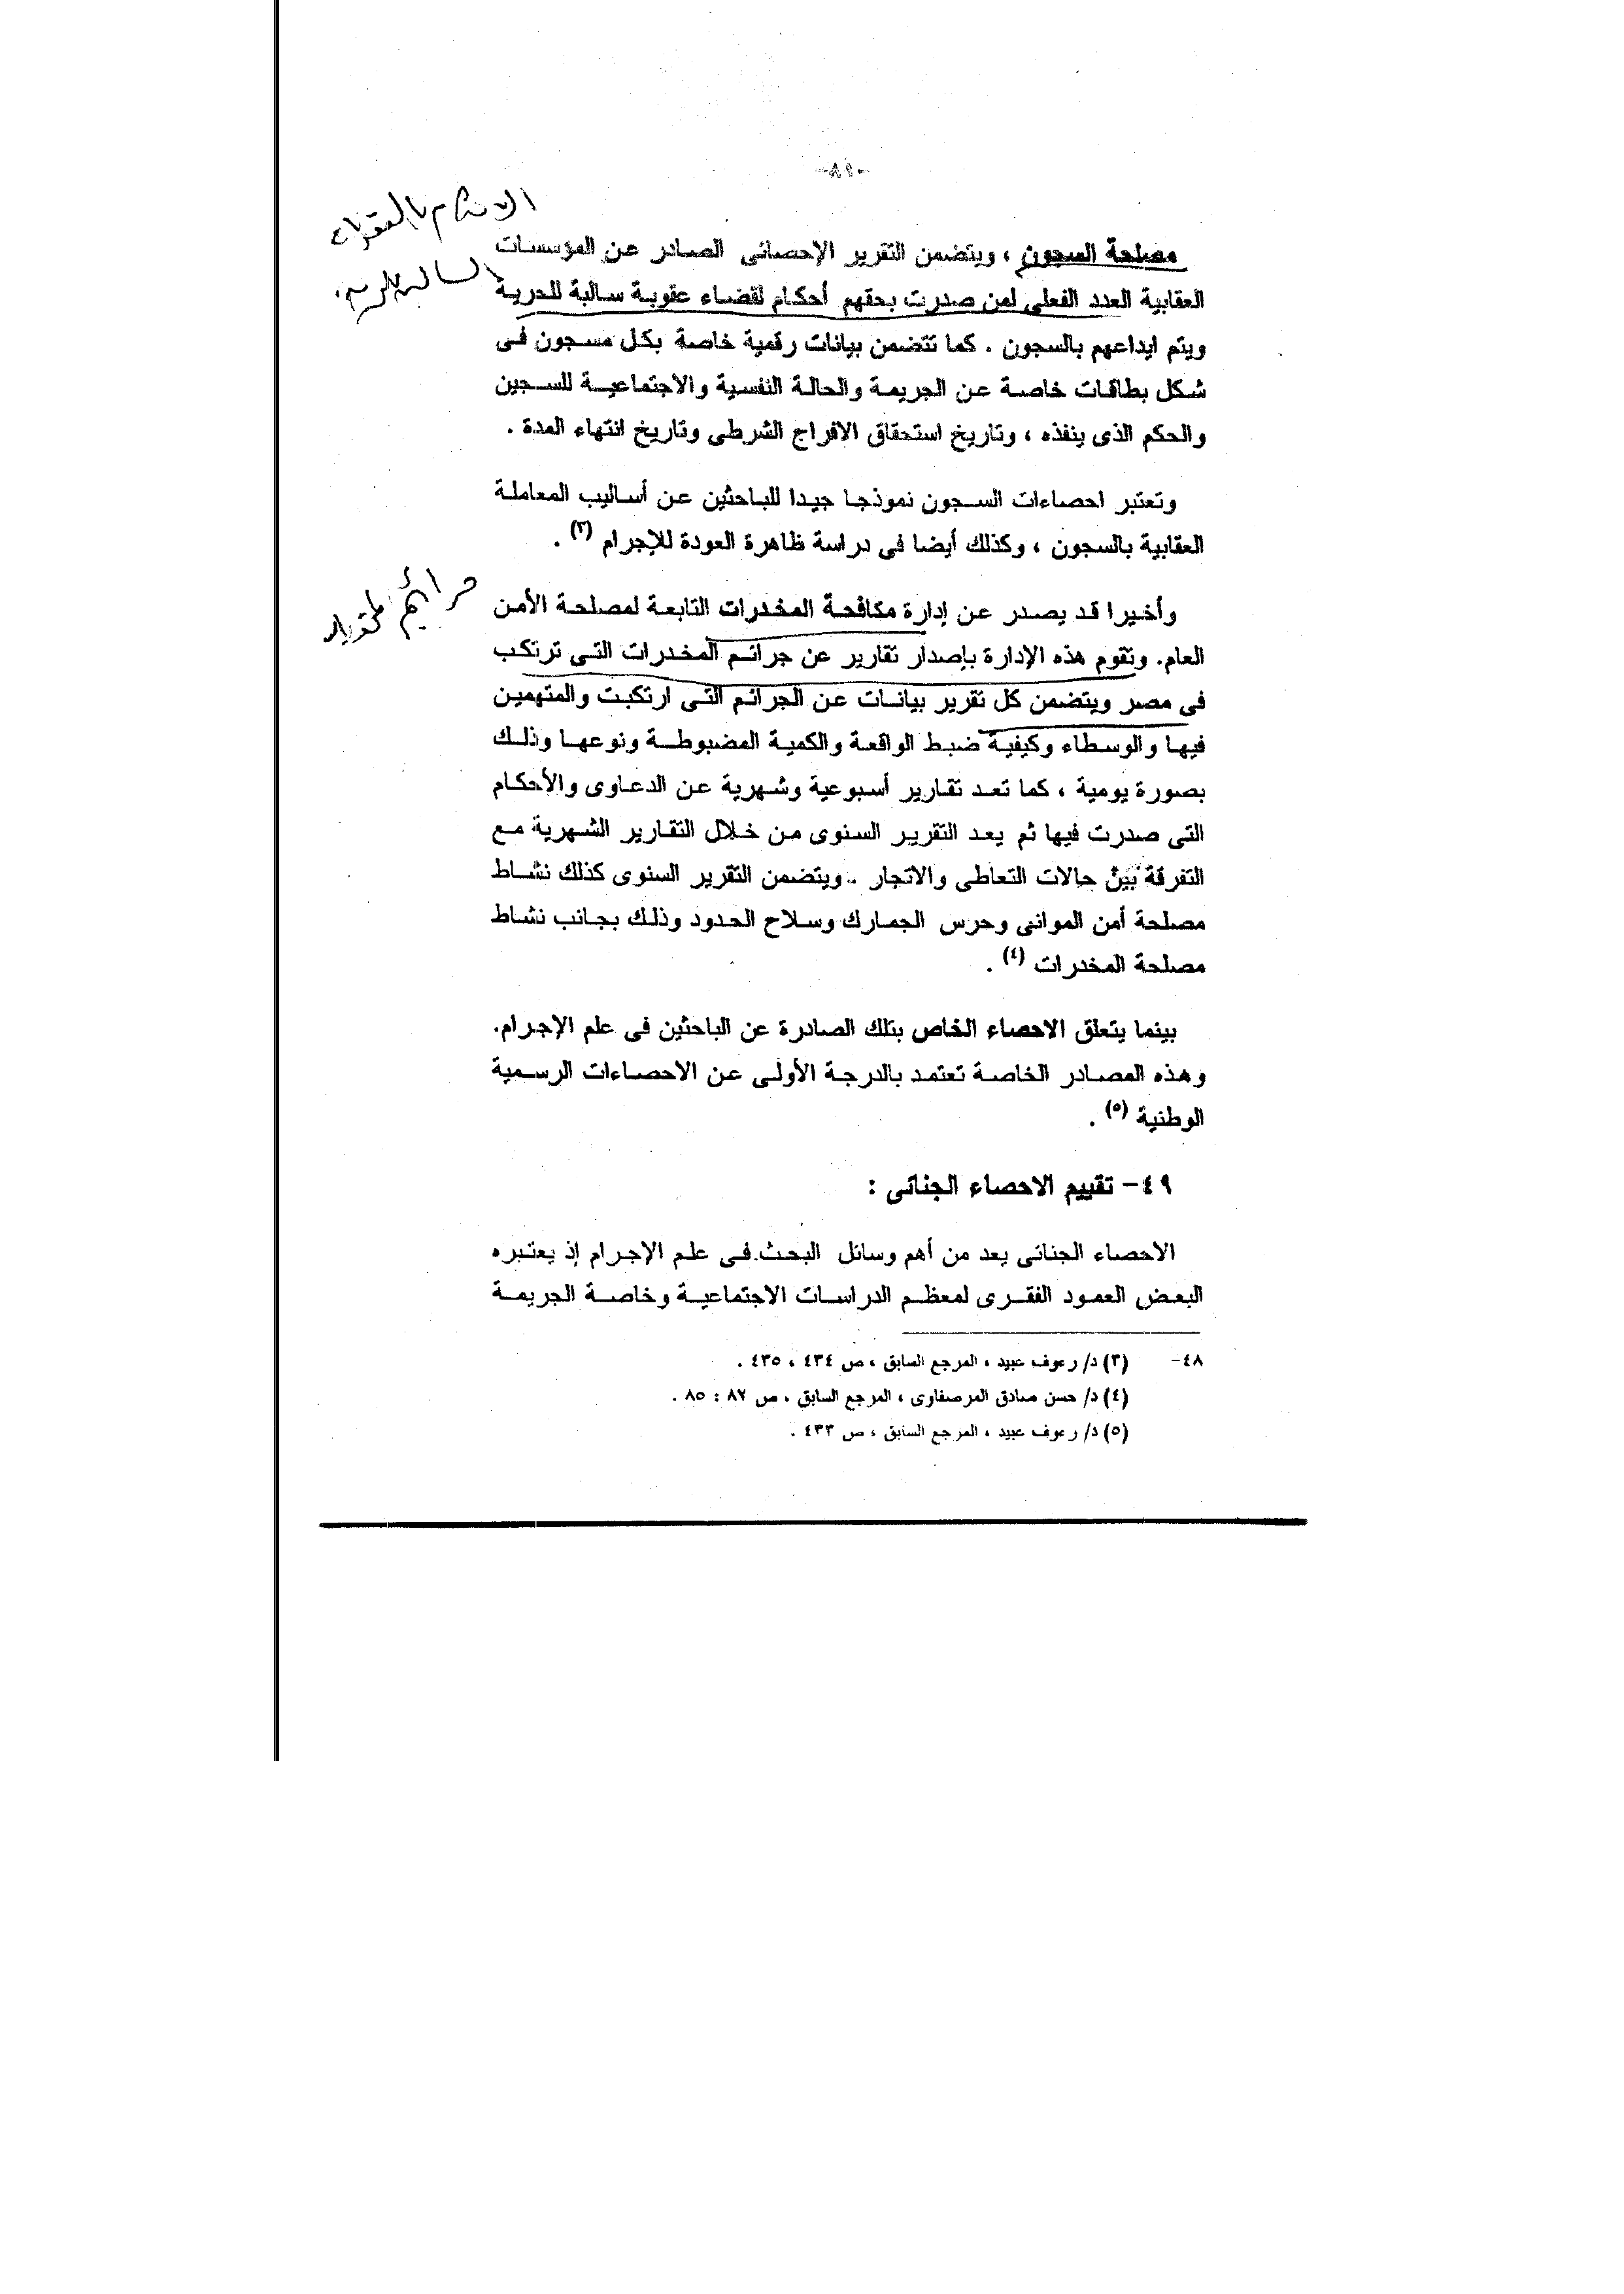 مصلحة السجون ، ويتضمن التقرير الإحصائى الصادر عن المؤسسات
العقابية العدد الفعلى لمن صدرت بحقهم أحكام لقضاء عقوبة سالبة للحرية
ويتم ايداعهم بالسجون . كما تتضمن بيانات رقمية خاصة بكل مسجون فى
شكل بطاقات خاصة عن الجريمة والحالة النفسية والاجتماعية للسجين
والحكم الذى ينفذه ، وتاريخ استحقاق الافراج الشرطى وتاريخ انتهاء المدة .
وتعتبر احصاءات السجون نموذجا جيدا للباحثين عن أساليب المعاملة
العقابية بالسجون ، وكذلك أيضا فى دراسة ظاهرة العودة للإجرام (٣) .
جرائم المخدرات
وأخيرا قد يصدر عن إدارة مكافحة المخدرات التابعة لمصلحة الأمن
العام. وتقوم هذه الإدارة بإصدار تقارير عن جرائم المخدرات التى ترتكب
فى مصر ويتضمن كل تقرير بيانات عن الجرائم التى ارتكبت والمتهمين
فيها والوسطاء وكيفية ضبط الواقعة والكمية المضبوطة ونوعها وذلك
بصورة يومية ، كما تعد تقارير أسبوعية وشهرية عن الدعاوى والأحكام
التى صدرت فيها ثم يعد التقرير السنوى من خلال التقارير الشهرية مع
التفرقة بين حالات التعاطى والاتجار .. ويتضمن التقرير السنوى كذلك نشاط
مصلحة أمن الموانى وحرس الجمارك وسلاح الحدود وذلك بجانب نشاط
مصلحة المخدرات (٤) .
بينما يتعلق الاحصاء الخاص بتلك الصادرة عن الباحثين فى علم الإجرام.
وهذه المصادر الخاصة تعتمد بالدرجة الأولى عن الاحصاءات الرسمية
الوطنية (٥) .
٤٩- تقييم الاحصاء الجنائى :
الاحصاء الجنائى يعد من أهم وسائل البحث فى علم الإجرام إذ يعتبره
البعض العمود الفقرى لمعظم الدراسات الاجتماعية وخاصة الجريمة
٤٨- (٣) د/ رءوف عبيد ، المرجع السابق ، ص ٤٣٤ ، ٤٣٥ .
(٤) د/ حسن صادق المرصفاوى ، المرجع السابق ، ص ٨٢ : ٨٥ .
(٥) د/ رءوف عبيد ، المرجع السابق ، ص ٤٣٣ .